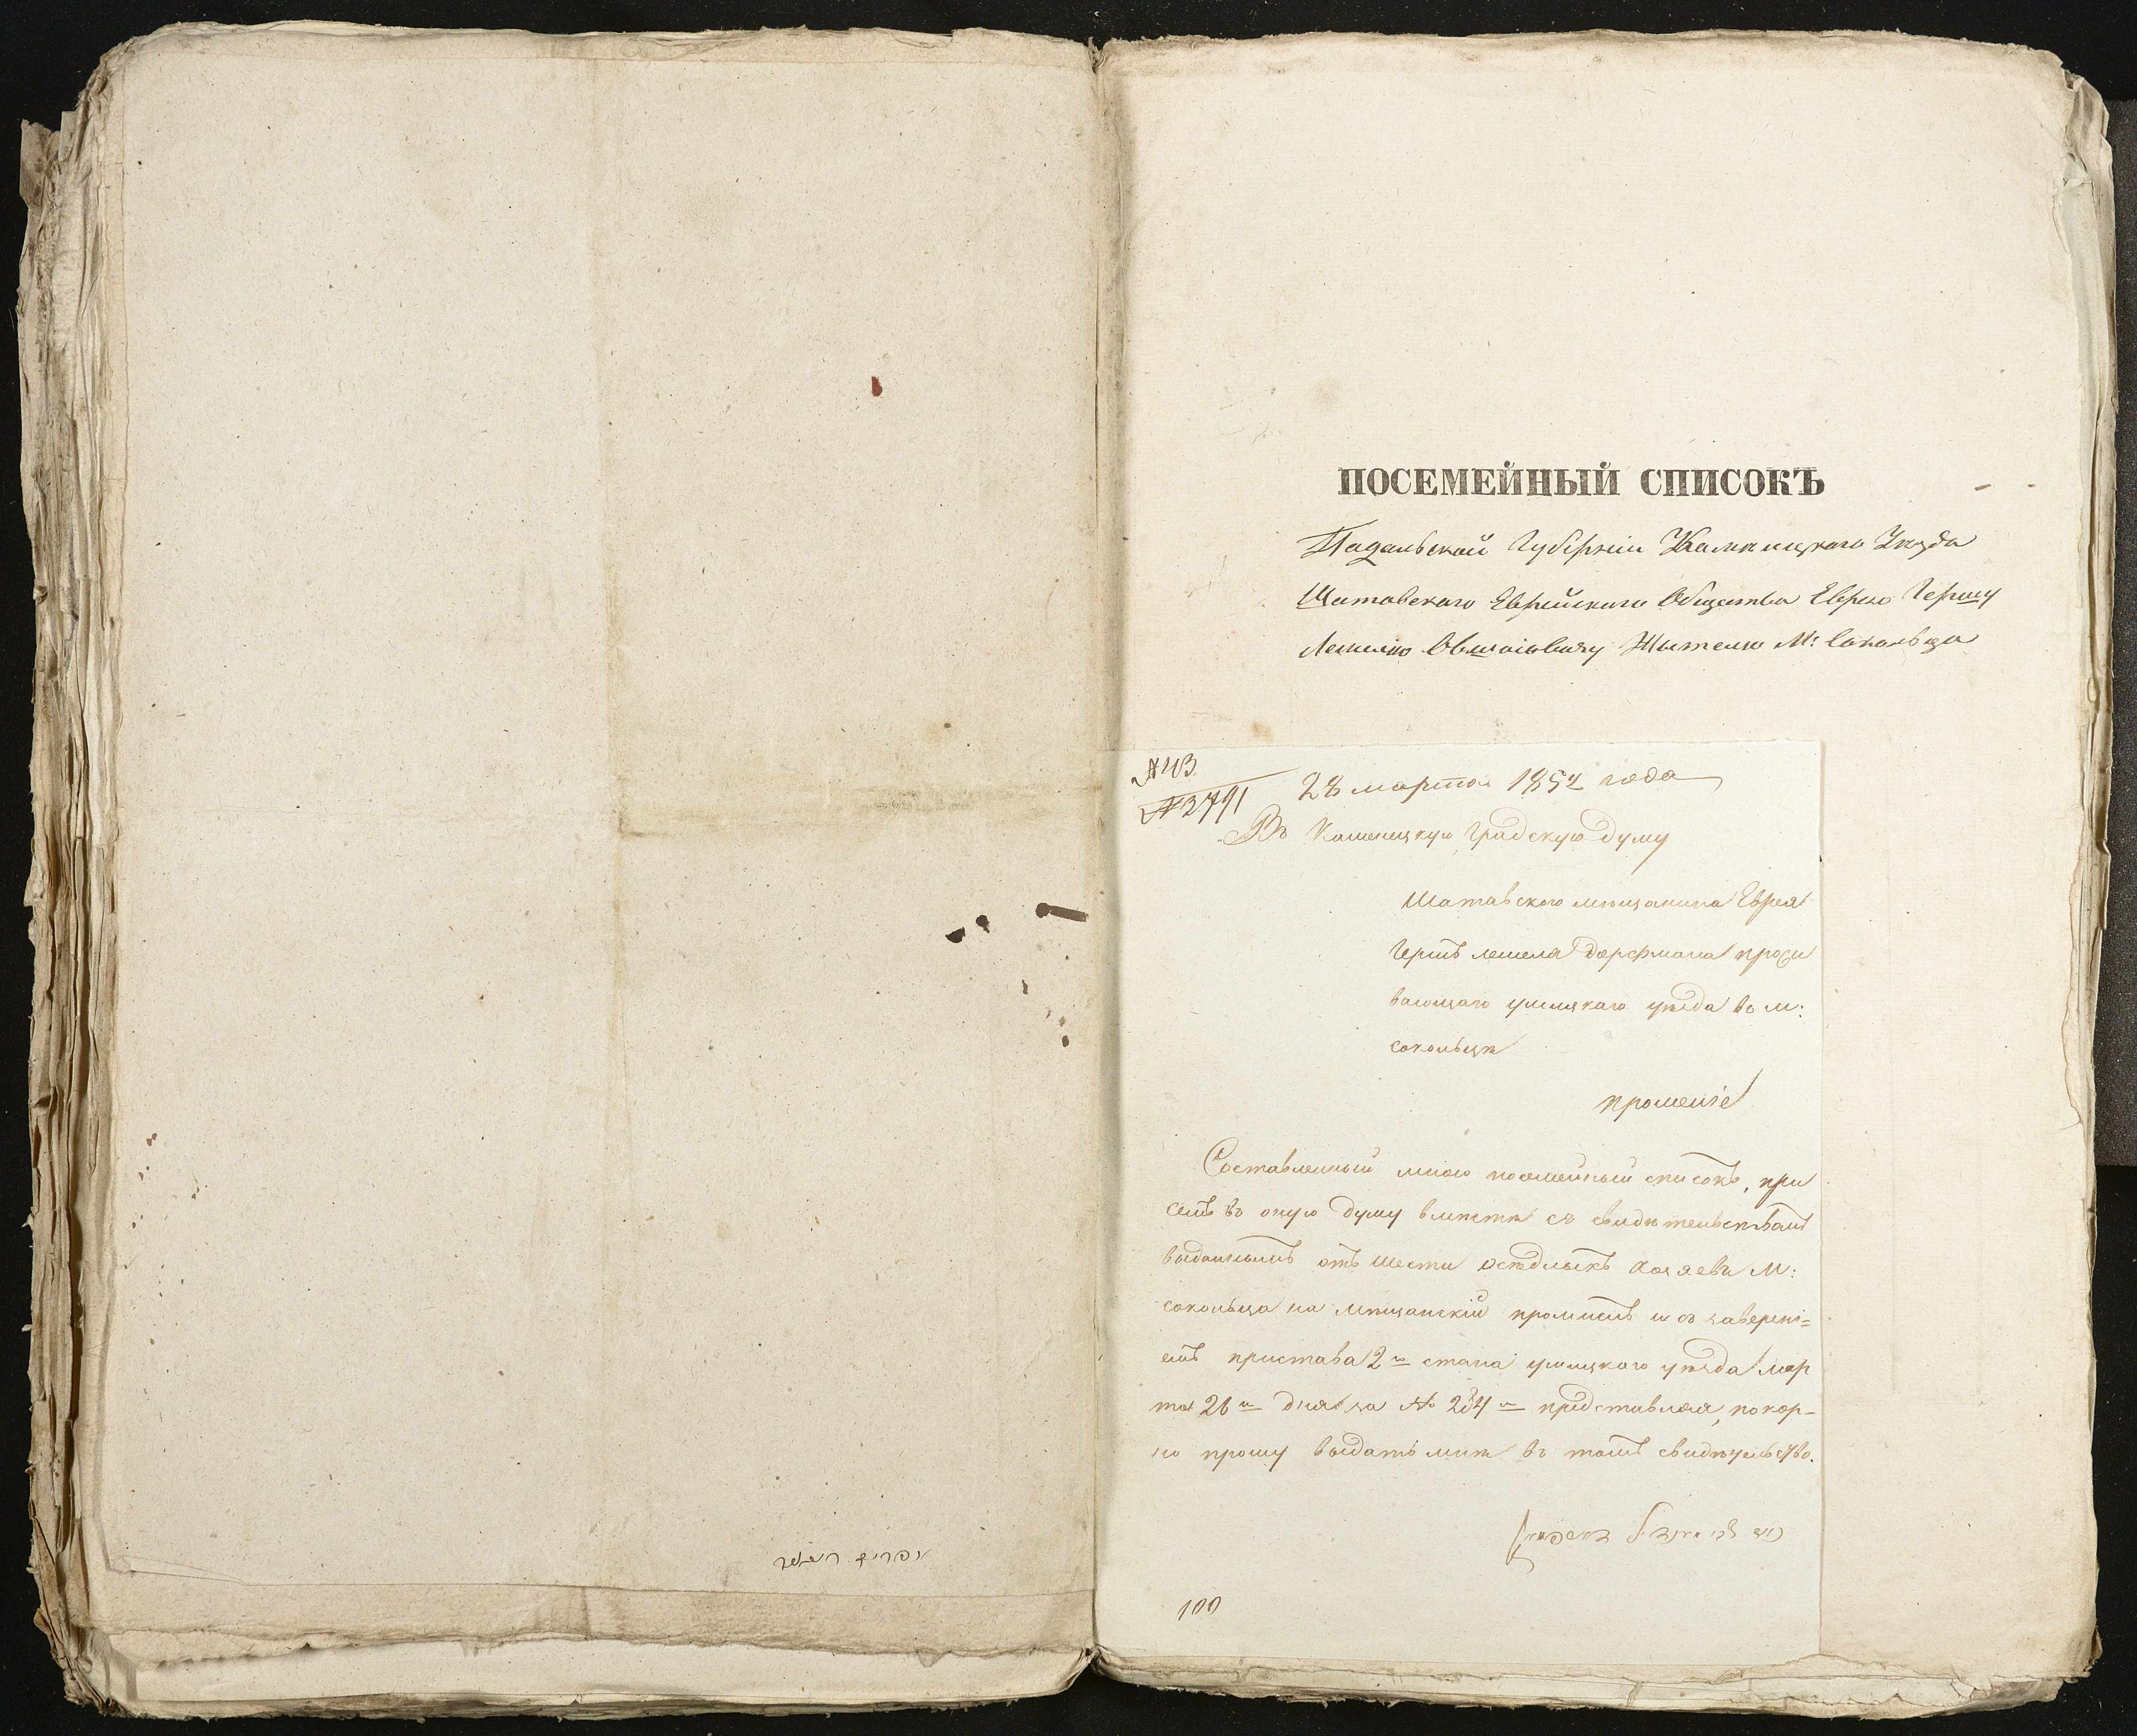 ПОСЕМЕЙНЫЙ СПИСОКЪ
Падальской Губерніи Камѣницкого Уѣзда
Шатавского Еврейского Общества Еврею Гершу
Лемелю Овшаіовичу Жителю М: Сокольца
№ 43
№ 2791
28 марта 1854 года
Въ Каменецкую Градскую думу
Шатавского мѣщанина Еврея
Гершъ лемеля Дорфмана прожи
вающаго ушицкаго уѣзда во м:
сокольцѣ
прошеніе
Составленный мною посемейный списокъ, при
семъ въ оную думу вмѣстѣ съ свидѣтельствамъ
выданнымъ отъ шести осѣдлыхъ хозяевъ М:
сокольца на мѣщанскій промыслъ и съ заверені=
емъ пристава 2го стана ушицкого уѣзда мар
та 26го дня за № 284м представляя, покор-
но прошу выдать мнѣ въ томъ свидѣтельство.
100